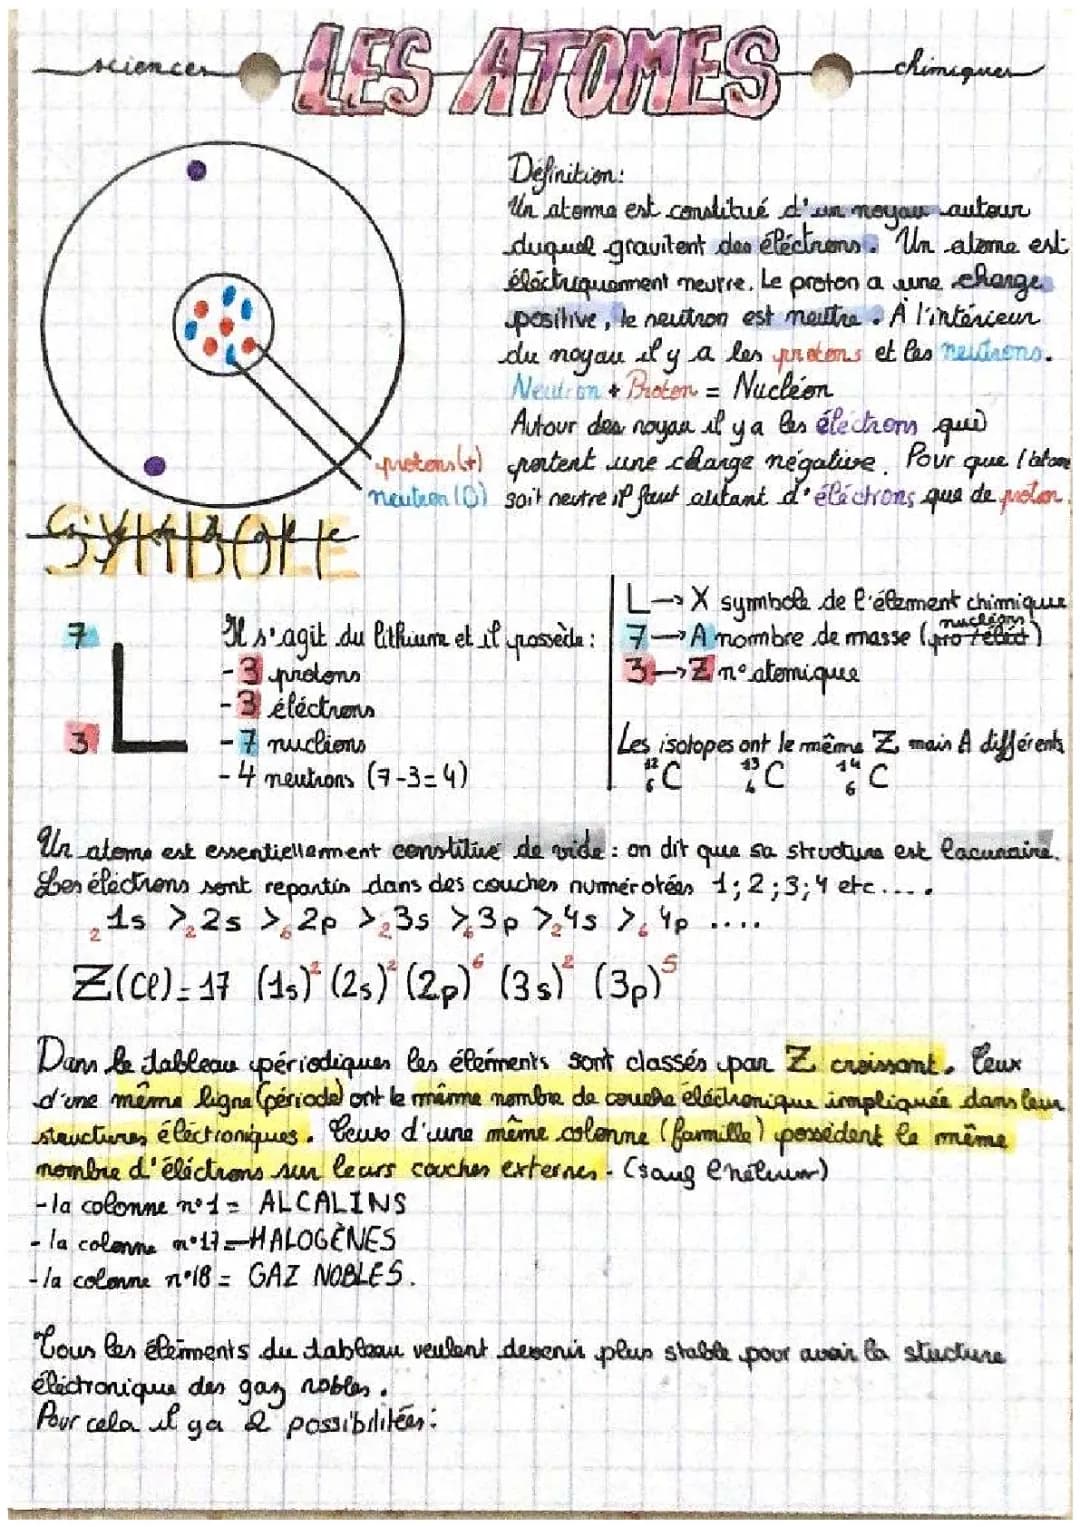 sciences LES ATOMES chimiques
Définition:
Un atome est constitué d'un noyau autour
duquel gravitent des éléctrons. Un atome est
éléctriquement neutre. Le proton a une charge
positive, le neutron est neutre. À l'intérieur
du noyau il y a les protons et les neutrons.
Neutron + Proton = Nucléon
Autour des noyau il y a les électrons qui
portent une charge négative. Pour que l'atome
soit neutre il faut autant d'éléctrons que de proton.
protons (+)
neutron (0)
SYMBOLE
7
L
3
Il s'agit du lithium et il possède :
- 3 protons
- 3 éléctrons
- 7 nucléons
- 4 neutrons (7-3=4)
L → X symbole de l'élément chimique
7 → A nombre de masse (nucléons)
3 → Z n° atomique
Les isotopes ont le même Z mais A différents
12 6 C 13 6 C 14 6 C
Un atome est essentiellement constitué de vide : on dit que sa structure est lacunaire.
Les éléctrons sont repartis dans des couches numérotées 1; 2; 3; 4 etc....
2 1s > 2 2s > 6 2p > 2 3s > 6 3p > 2 4s > 6 4p ....
Z(Cl) = 17 (1s)² (2s)² (2p)⁶ (3s)² (3p)⁵
Dans le tableau périodiques les éléments sont classés par Z croissant. Ceux
d'une même ligne (période) ont le même nombre de couche éléctronique impliquée dans leur
structures éléctroniques. Ceux d'une même colonne (famille) possèdent le même
nombre d'éléctrons sur leurs couches externes. (sauf l'hélium)
- la colonne n°1 = ALCALINS
- la colonne n°17 = HALOGÈNES
- la colonne n°18 = GAZ NOBLES.
Tous les éléments du tableau veulent devenir plus stable pour avoir la stucture
éléctronique des gaz nobles.
Pour cela il ya 2 possibilitées: